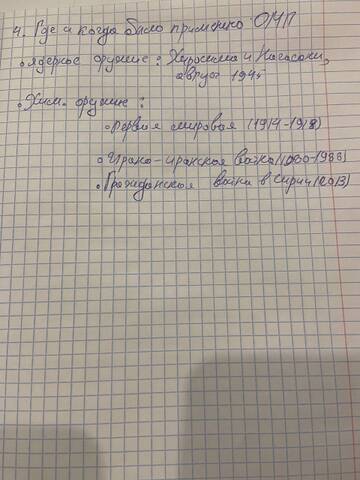 4. Где и когда было применено ОМП
• ядерное оружие: Хиросима и Нагасаки,
август 1945
• Хим. оружие:
• Первая мировая (1914-1918)
• Ирано-иракская война (1980-1988)
• Гражданская война в Сирии (2013)